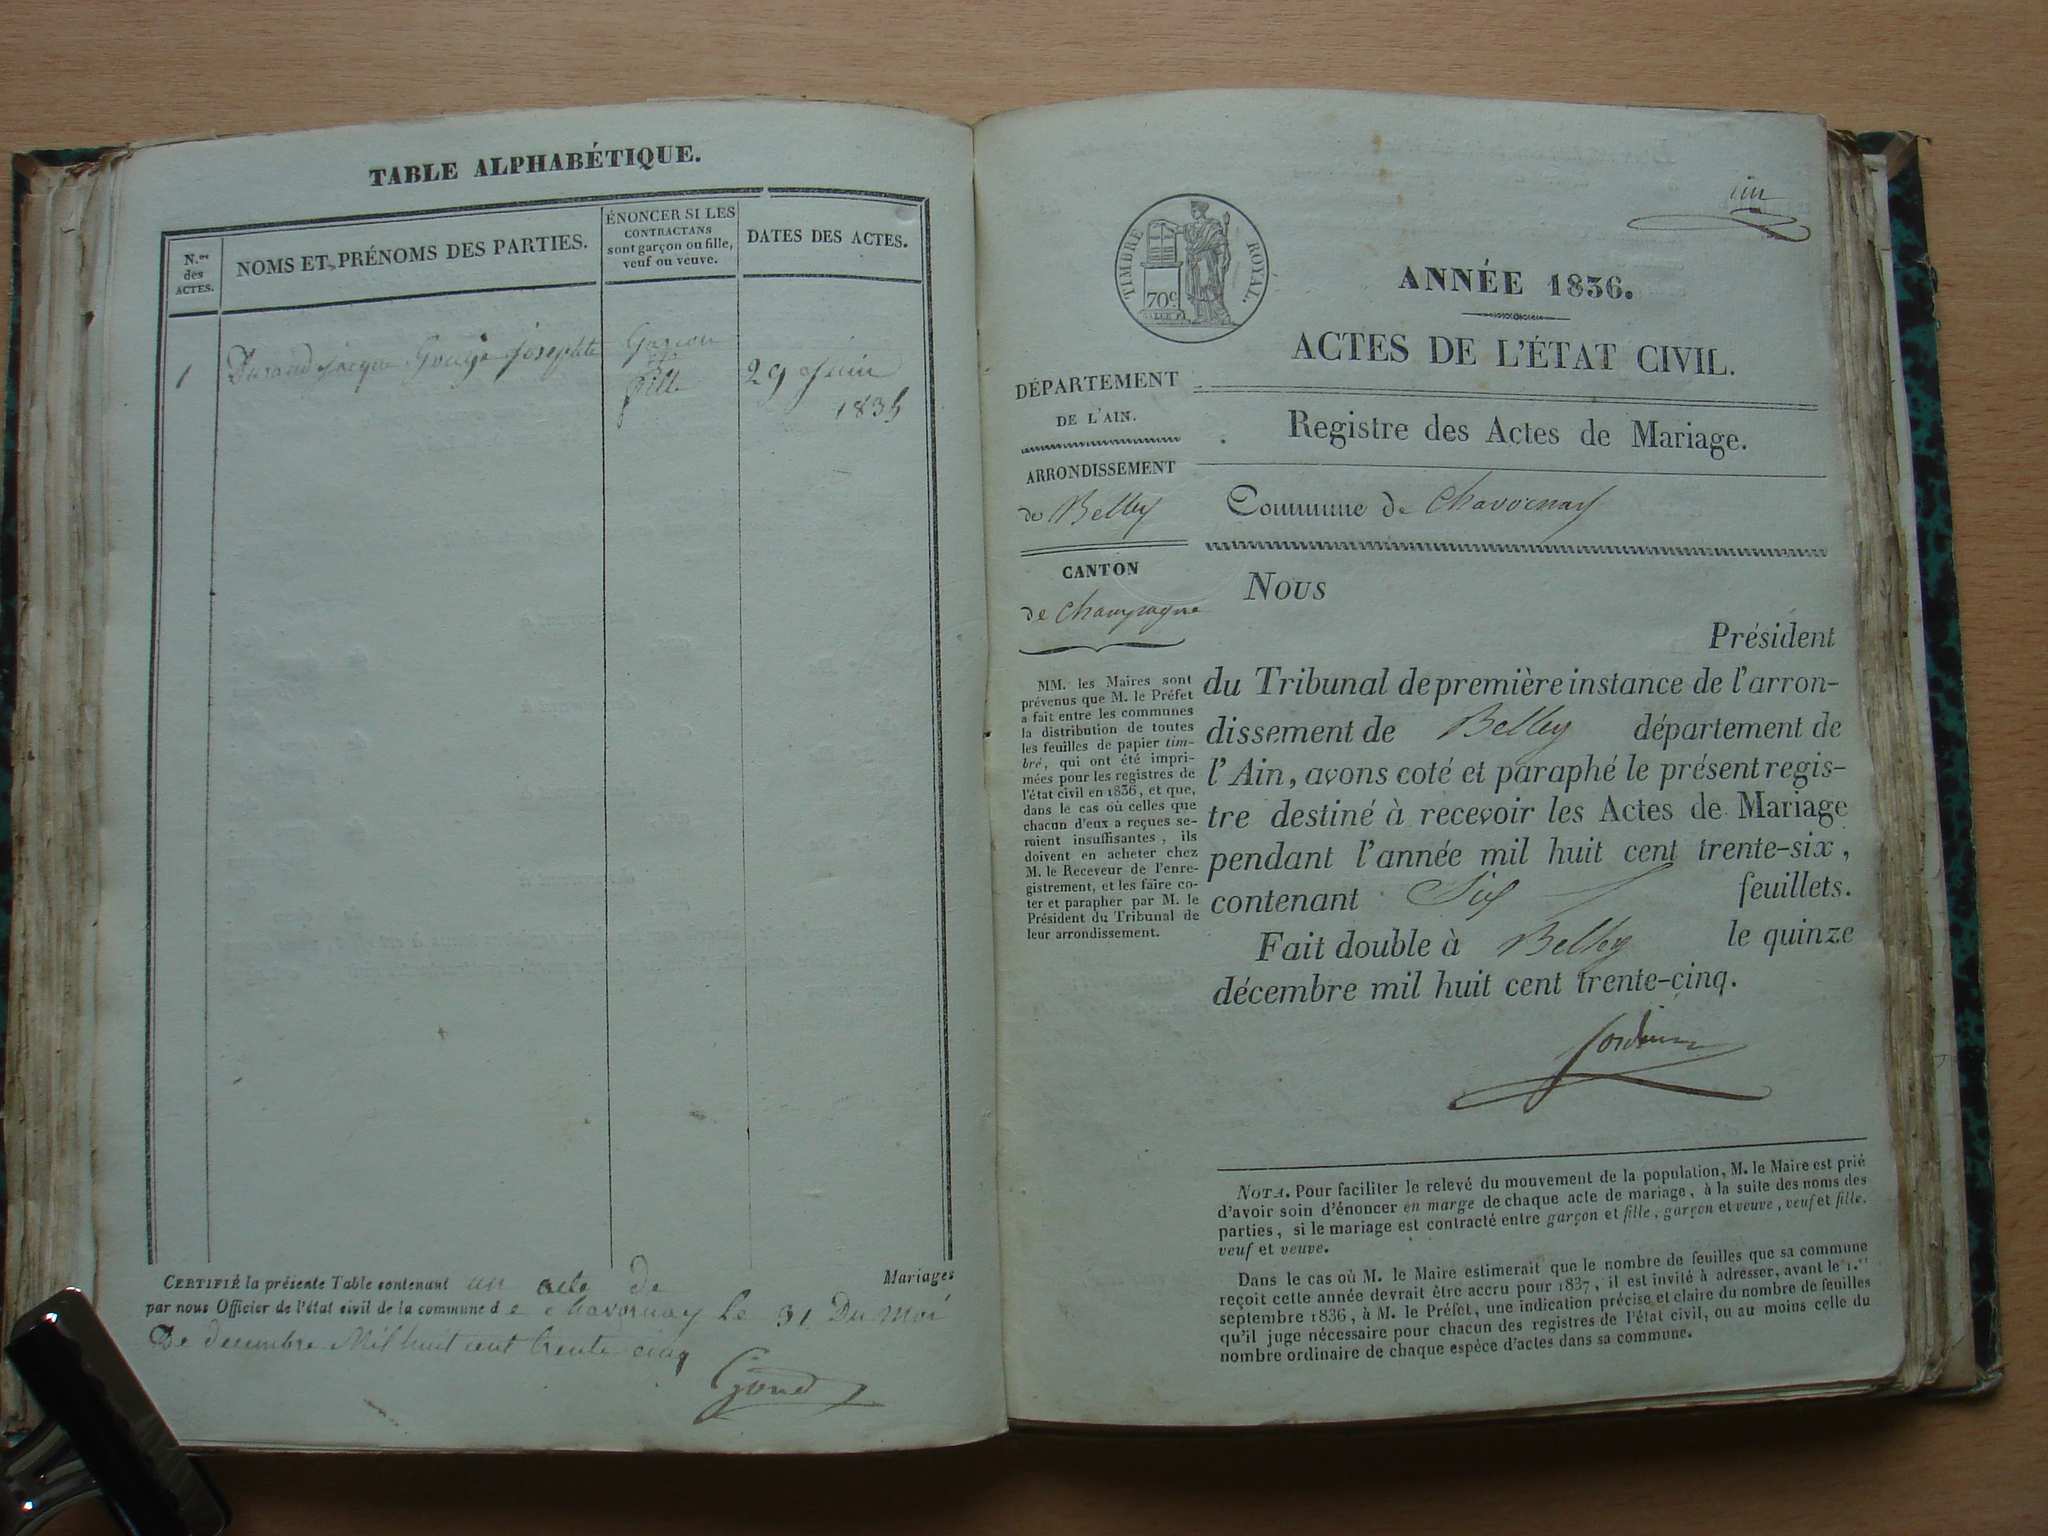 TABLE ALPHABÉTIQUE.
N.os des ACTES.
NOMS ET PRÉNOMS DES PARTIES.
ÉNONCER SI LES
CONTRACTANS
sont garçon ou fille,
veuf ou veuve.
DATES DES ACTES.
1 Durand jacque Gouge josephte
Garcon
et
fille
29 juin
1835
CERTIFIÉ la présente Table contenant un acte de Mariages
par nous Officier de l'état civil de la commune de Chavornay Le 31 Du Moi
De decembre Mil huit cent trente cinq
un
TIMBRE ROYAL.
70c
ANNÉE 1836.
ACTES DE L'ÉTAT CIVIL.
DÉPARTEMENT
DE L'AIN.
Registre des Actes de Mariage.
ARRONDISSEMENT
de Belley
Commune de Chavornay
CANTON
de Champagne
MM. les Maires sont
prévenus que M. le Préfet
a fait entre les communes
la distribution de toutes
les feuilles de papier tim-
bré, qui ont été impri-
mées pour les registres de
l'état civil en 1836, et que,
dans le cas où celles que
chacun d'eux a reçues se-
raient insuffisantes, ils
doivent en acheter chez
M. le Receveur de l'enre-
gistrement, et les faire co-
ter et parapher par M. le
Président du Tribunal de
leur arrondissement.
Nous
Président
du Tribunal de première instance de l'arron-
dissement de Belley département de
l'Ain, avons coté et paraphé le présent regis-
tre destiné à recevoir les Actes de Mariage
pendant l'année mil huit cent trente-six,
contenant Six feuillets.
Fait double à Belley le quinze
décembre mil huit cent trente-cinq.
NOTA. Pour faciliter le relevé du mouvement de la population, M. le Maire est prié
d'avoir soin d'énoncer en marge de chaque acte de mariage, à la suite des noms des
parties, si le mariage est contracté entre garçon et fille, garçon et veuve, veuf et fille.
veuf et veuve.
Dans le cas où M. le Maire estimerait que le nombre de feuilles que sa commune
reçoit cette année devrait être accru pour 1837, il est invité à adresser, avant le 1.er
septembre 1836, à M. le Préfet, une indication précise et claire du nombre de feuilles
qu'il juge nécessaire pour chacun des registres de l'état civil, ou au moins celle du
nombre ordinaire de chaque espèce d'actes dans sa commune.